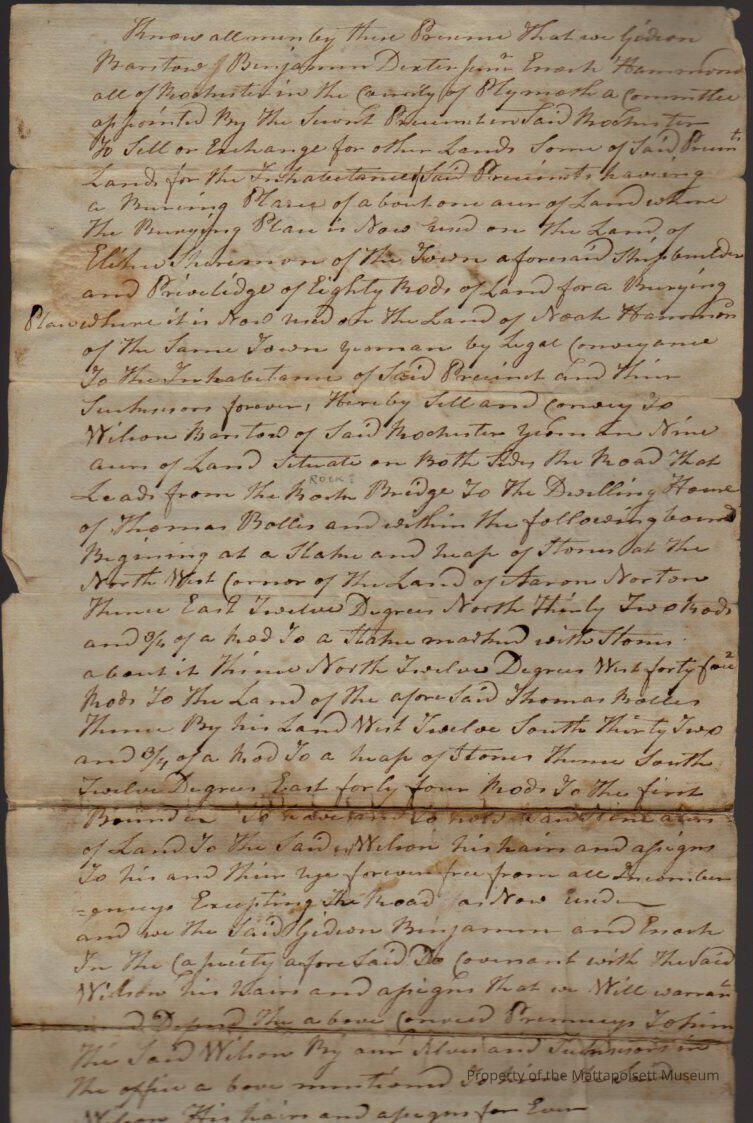 Know all men by these Presence That we Gideon
Barstow & Benjamin Dexter Junr Enoch Hammond
all of Rochester in the County of Plymoth a Committee
appointed By the Precinct in Said Rochester
To Sell or Exchange for other Lands Some of Said Precints
Lands for the Inhabitance of Said Precincts having
a Burying Place of about one acer of Land where
the Burying Place is Now used on the Land of
Elihu Sheremon of the Town aforesaid Shipbuilder
and Priviledge of Eighty Rods of Land for a Burying
Place where it is Now used on the Land of Noah Hammon
of the Same Town yeoman by Legal Conveyance
To the Inhabitance of Said Precinct and their
forever, Hereby Sell and Convey To
Wilson Barstow of Said Rochester yeoman Nine
acers of Land Situate on Both Sides the Road That
ROCK?
Leads from the Bridge To the Dwelling House
of Thomas Bolles and within the following bound
Begining at a Stake and heap of Stones at the
North West Cornor of the Land of Aaron Norton
Thence East Twelve Degrees North Thirty Two Rods
and 3/4 of a Rod To a Stake marked with Stones
about it thence North Twelve Degrees West forty four
Rods To the Land of the afore Said Thomas Bolles
Thence By his Land West Twelve South Thirty Two
and 3/4 of a Rod To a heap of Stones Thence South
Twelve Degrees East forty four Rods To the first
Bounder To have and To hold Said Nine acers
of Land To the Said Wilson his hairs and assigns
To his and their use forever free from all Incomber
=ences Excepting the Road as Now used
and we the Said Gideon Benjamin and Enoch
In the Capacity afore Said Do Covenant with the Said
Wilson his hairs and assigns that we Will warran
and Defend the above Conveied To him
the Said Wilson By our Selves and in
the office a bove mentioned
Wilson His hairs and assigns for Ever
Property of the Mattapoisett Museum